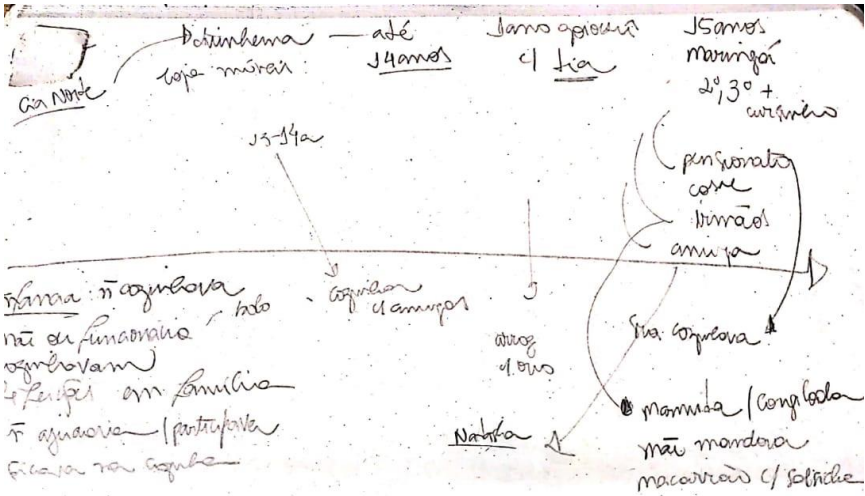 Cia Norte
até
14 anos
1 ano
c/ tia
15 anos
Maringá
2º, 3º +
cursinho
13-14a
pensionato
irmãos
amiga
infância ñ cozinhava
bolo
mãe ou funcionária
cozinhavam
refeições em família
ñ ajudava / participava
ficava na cozinha
cozinhar
c/ amigos
arroz
c/ ovo
tia cozinhava
marmita / congelada
mãe mandava
macarrão c/ salsicha